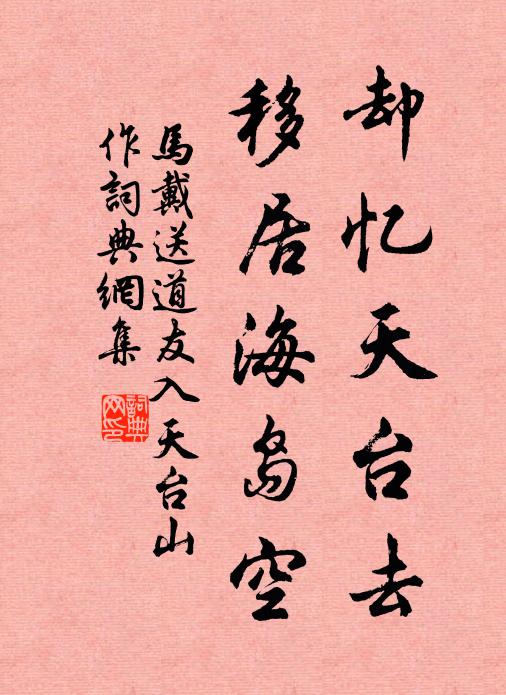 却忆天台去
移居海岛空
馬戴送道友入天台山
作詞典網集
詞典网印